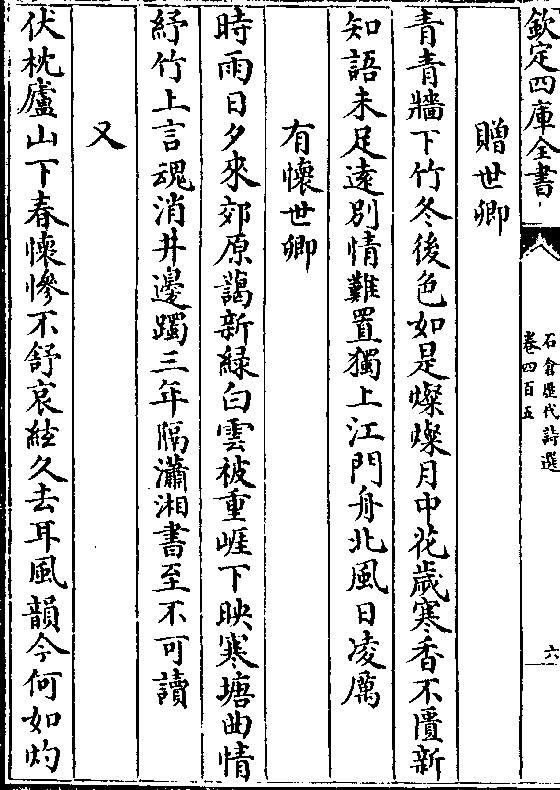 欽定四庫全書
石倉歷代詩選
卷四百五
六
贈世卿
青青牆下竹冬後色如是燦燦月中花歲寒香不匱新
知語未足遠別情難置獨上江門舟北風日凌厲
有懷世卿
時雨日夕來郊原藹新緑白雲被重崕下映寒塘曲情
紓竹上言魂消井邊躅三年隔瀟湘書至不可讀
又
伏枕廬山下春懷慘不舒哀絃久去耳風韻今何如灼